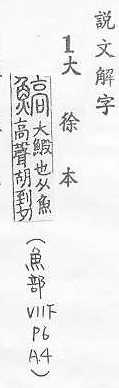 説文解字
1大徐本
鰝
大鰕也从魚
高聲胡到切
(魚部
VII下
P6
A.4)